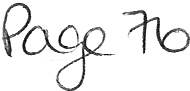 Page 76